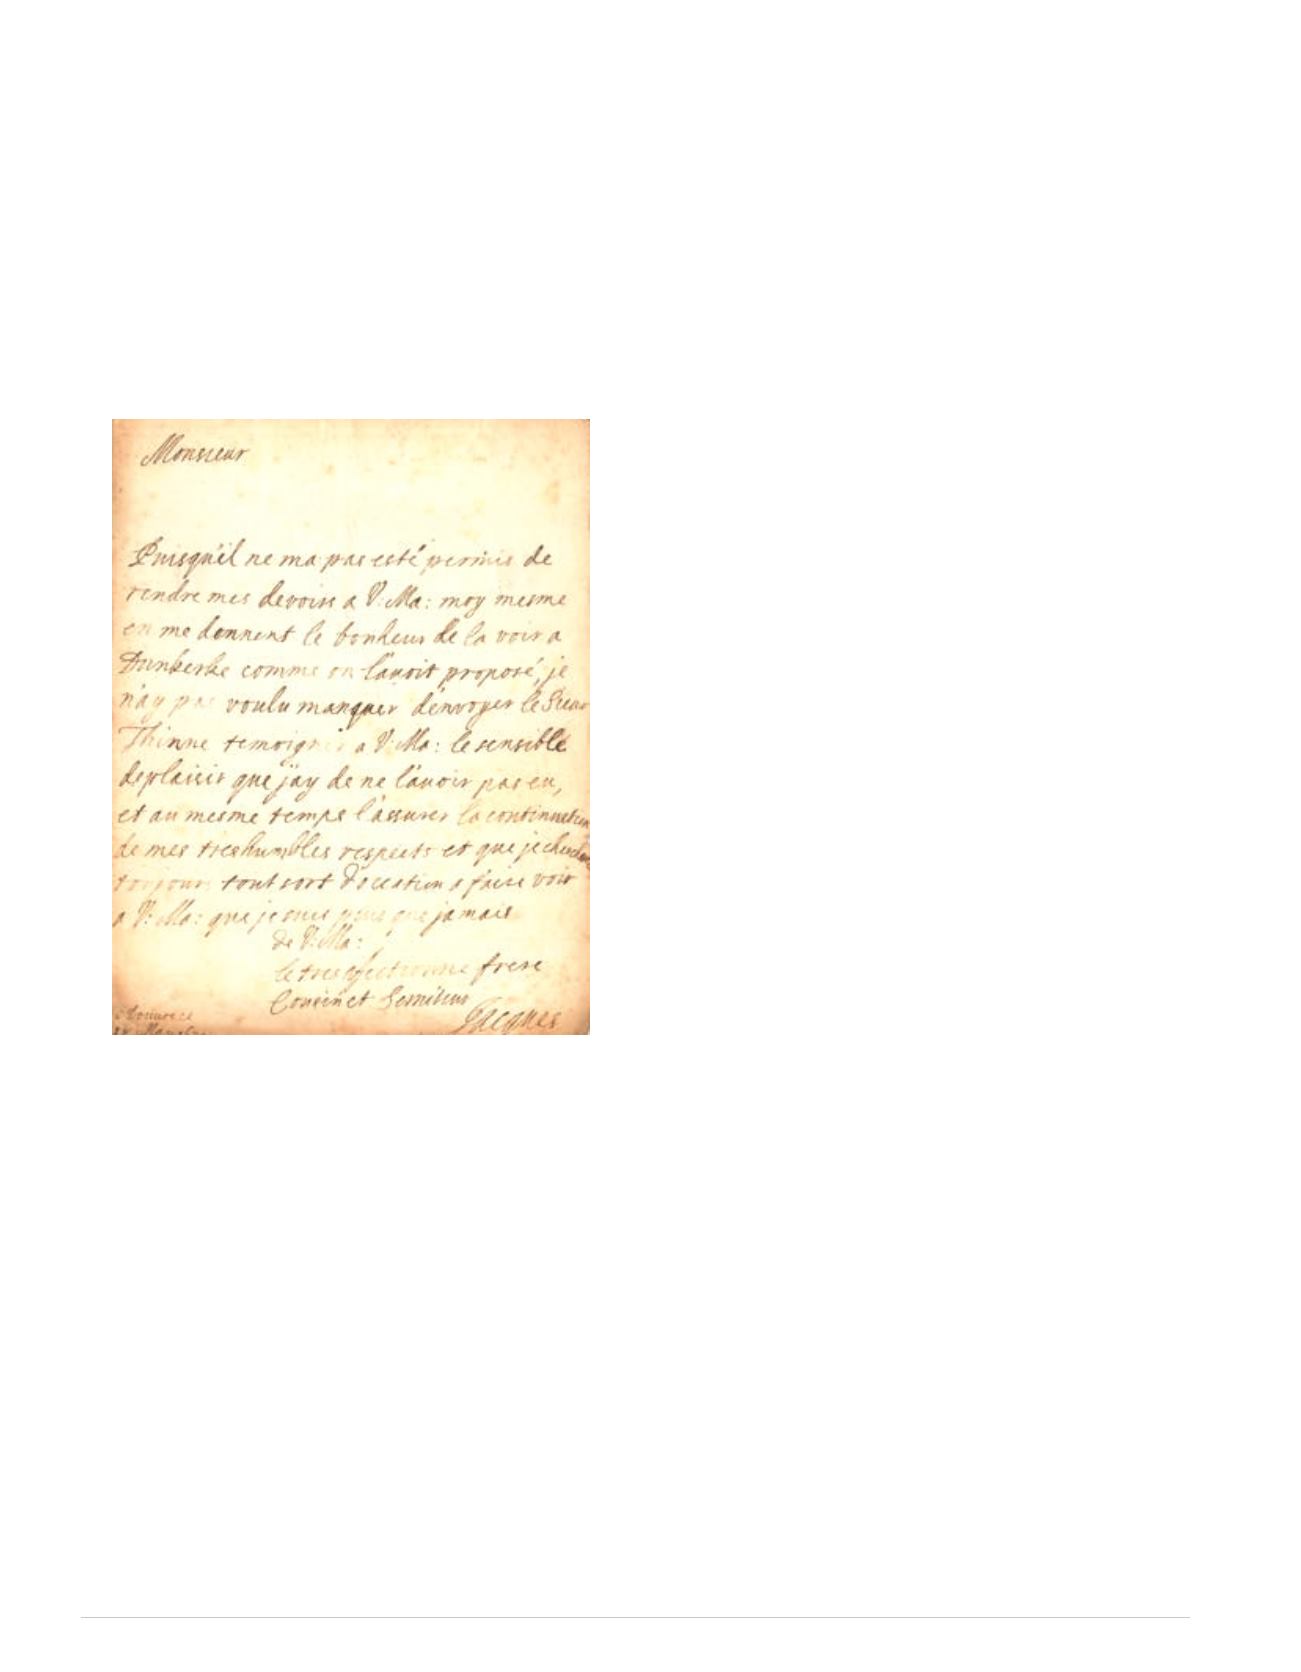 Monsieur
Puisqu'il ne ma pas esté permis de
rendre mes devoirs a V: Ma: moy mesme
en me donnent le bonheur de la voir a
Dunkerke comme on l'auoit proposé, je
n'ay pas voulu manquer d'envoyer le Sieur
Thinne temoigner a V: Ma: le sensible
deplaisir que j'ay de ne l'auoir pas eu,
et au mesme temps l'assurer la continuation
de mes treshumbles respects et que je
toujours tout sort d'occation a faire voir
a V: Ma: que je suis plus que jamais
de V: Ma:
le tres affectionne frere
Cousin et Serviteur
Jacques